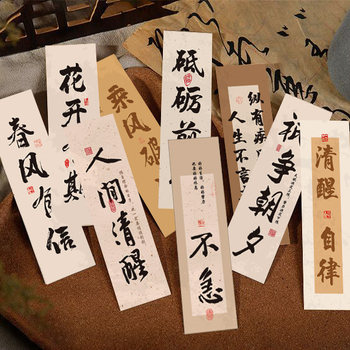 春风有信
花开
其
乘风
破
人间清醒
砥砺前
不急
纵有疾风
人生不言
争朝夕
清醒 自律